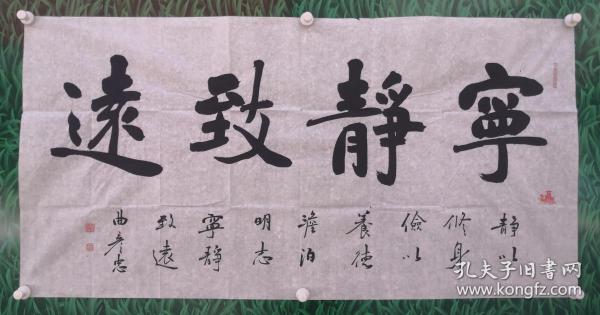 寧靜致遠
静以
修身
儉以
養德
澹泊
明志
寧靜
致遠
曲彦忠
孔夫子旧书网
www.kongfz.com